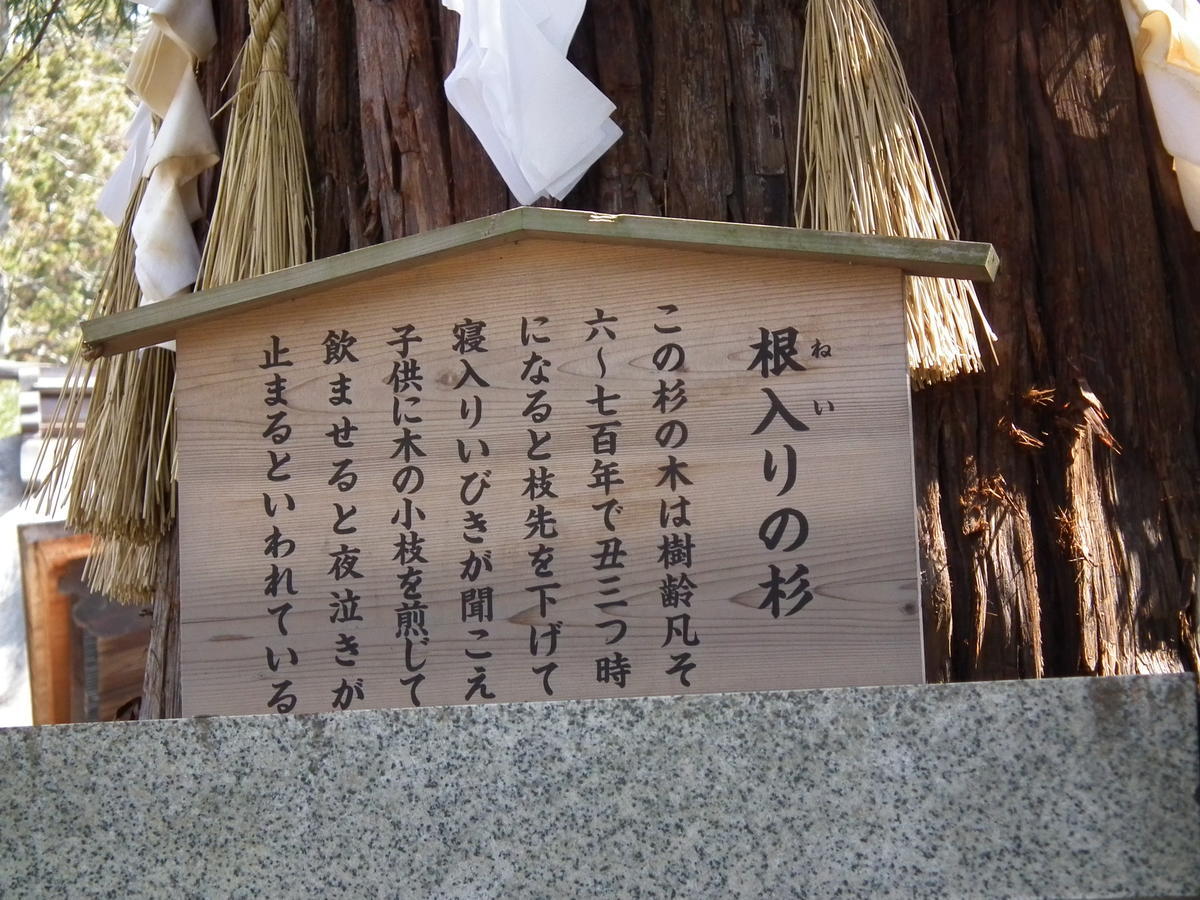 根入りの杉
ねい
この杉の木は樹齢凡そ
六〜七百年で丑三つ時
になると枝先を下げて
寝入りいびきが聞こえ
子供に木の小枝を煎じて
飲ませると夜泣きが
止まるといわれている